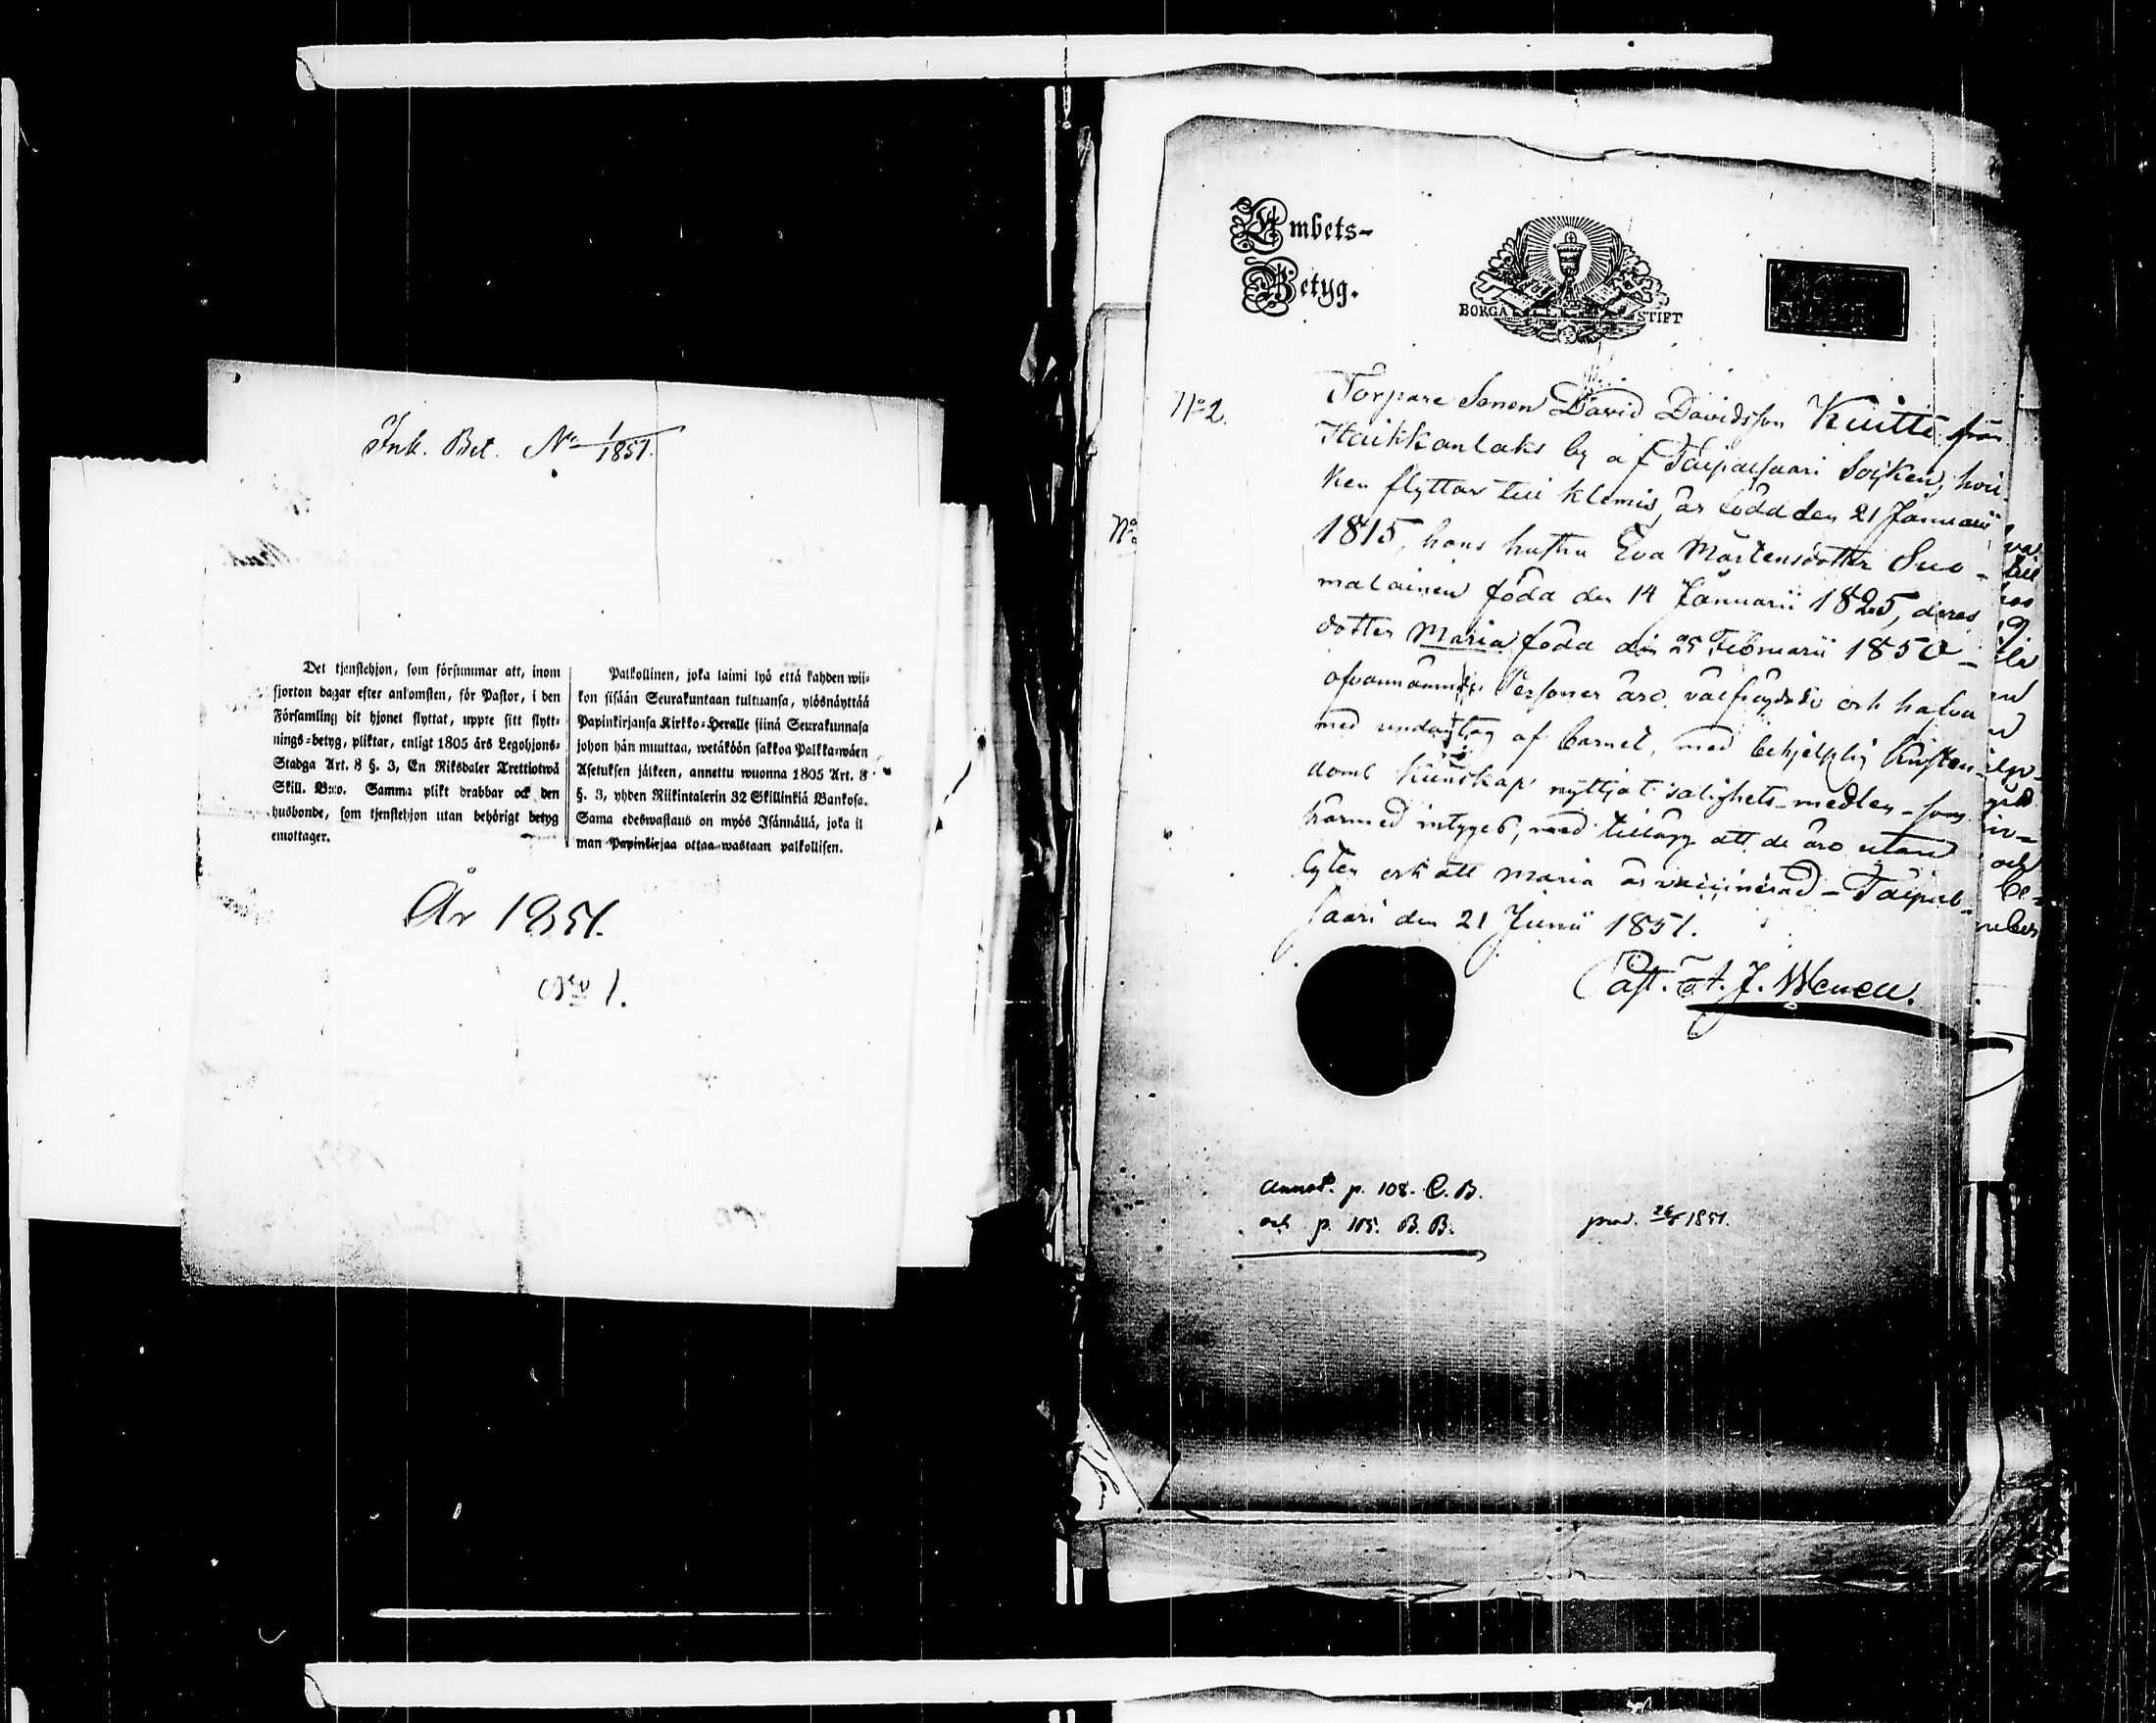 Ink. Bet. No 1/1851.
Det tjenstehjon, som försummar att, inom
fjorton dagar efter ankomsten, för Pastor, i den
Församling dit hjonet flyttat, uppte sitt flytt-
nings-betyg, pliktar, enligt 1805 års Legohjons-
Stadga Art. 8 §. 3, En Riksdaler Trettiotwå
Skill. B:co. Samma plikt drabbar ock den
husbonde, som tjenstehjon utan behörigt betyg
emottager.
Palkollinen, joka laimi lyö että kahden wii-
kon sisään Seurakuntaan tultuansa, ylösnäyttää
Papinkirjansa Kirkko-Herralle siinä Seurakunnasa
johon hän muuttaa, wetäköön sakkoa Palkka-wäen
Asetuksen jälkeen, annettu wuonna 1805 Art. 8
§. 3, yhden Riikintalerin 32 Skillinkiä Bankosa.
Sama edeswastaus on myös Isännällä, joka il
man Papinkirjaa ottaa wastaan palkollisen.
År 1851.
No 1.
Embets-
Betyg.
BORGÅ STIFT
No 2.
Torpare Sonen David Davidsson Kuitti från
Haikkanlaks by af Taipalsaari Socken, hvil-
ken flyttar till Klemis, är född den 21 Januarii
1815, hans hustru Eva Mårtensdotter Suo-
malainen född den 14 Januarii 1825, deras
dotter Maria född den 25 Februarii 1850 –
ofvannämnde Personer äro välfrejdade och hafva
med undantag af barnet, med behjelplig Christen-
doms kunskap nyttjat salighets-medlen – som
härmed intygas, med tillägg att de äro utan
lyten och att Maria är vaccinerad – Taipal-
saari den 21 Junii 1851.
Past. A. J. Wenell.
No
Annot. p. 108. C. B.
och p. 115. B. B.
prod. 26/6 1851.